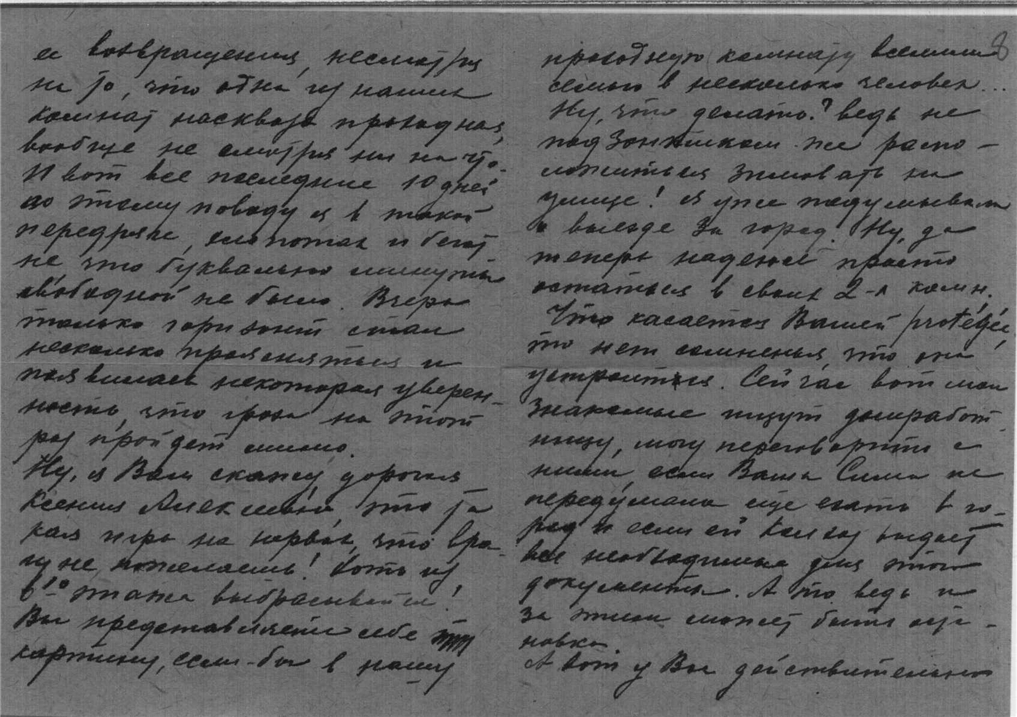 ее возвращения, несмотря
на то, что одна из наших
комнат насквозь проходная,
вообще не смотря ни на что.
И вот все последние 10 дней
по этому поводу я в такой
передряге, хлопотах и бегот
не, что буквально минуты
свободной не было. Вчера
только горизонт стал
несколько проясняться и
появилась некоторая уверен-
ность, что гроза на этот
раз пройдет мимо.
Ну, я Вам скажу, дорогая
Ксения Алексеевна, это та
кая игра на нервах, что вра-
гу не пожелаешь! Хоть из
6го этажа выбрасывайся!
Вы представляете себе эту
картину, если-бы в нашу
8
проходную комнату вселили
семью в несколько человек...
Ну, что делать? ведь не
под зонтиком же распо-
ложиться зимовать на
улице! Я уже подумывала
о выезде за город. Ну, да
теперь надеюсь просто
остаться в своих 2-х комн.
Что касается Вашей protégée,
то нет сомненья, что она
устроится. Сейчас вот мои
знакомые ищут домработ
ницу, могу переговорить с
ними, если Ваша Сима не
передумала еще ехать в го-
род и если ей колхоз выдаст
все необходимые для этого
документы. А то ведь и
за этим может быть оста-
новка.
А вот у Вас действительно